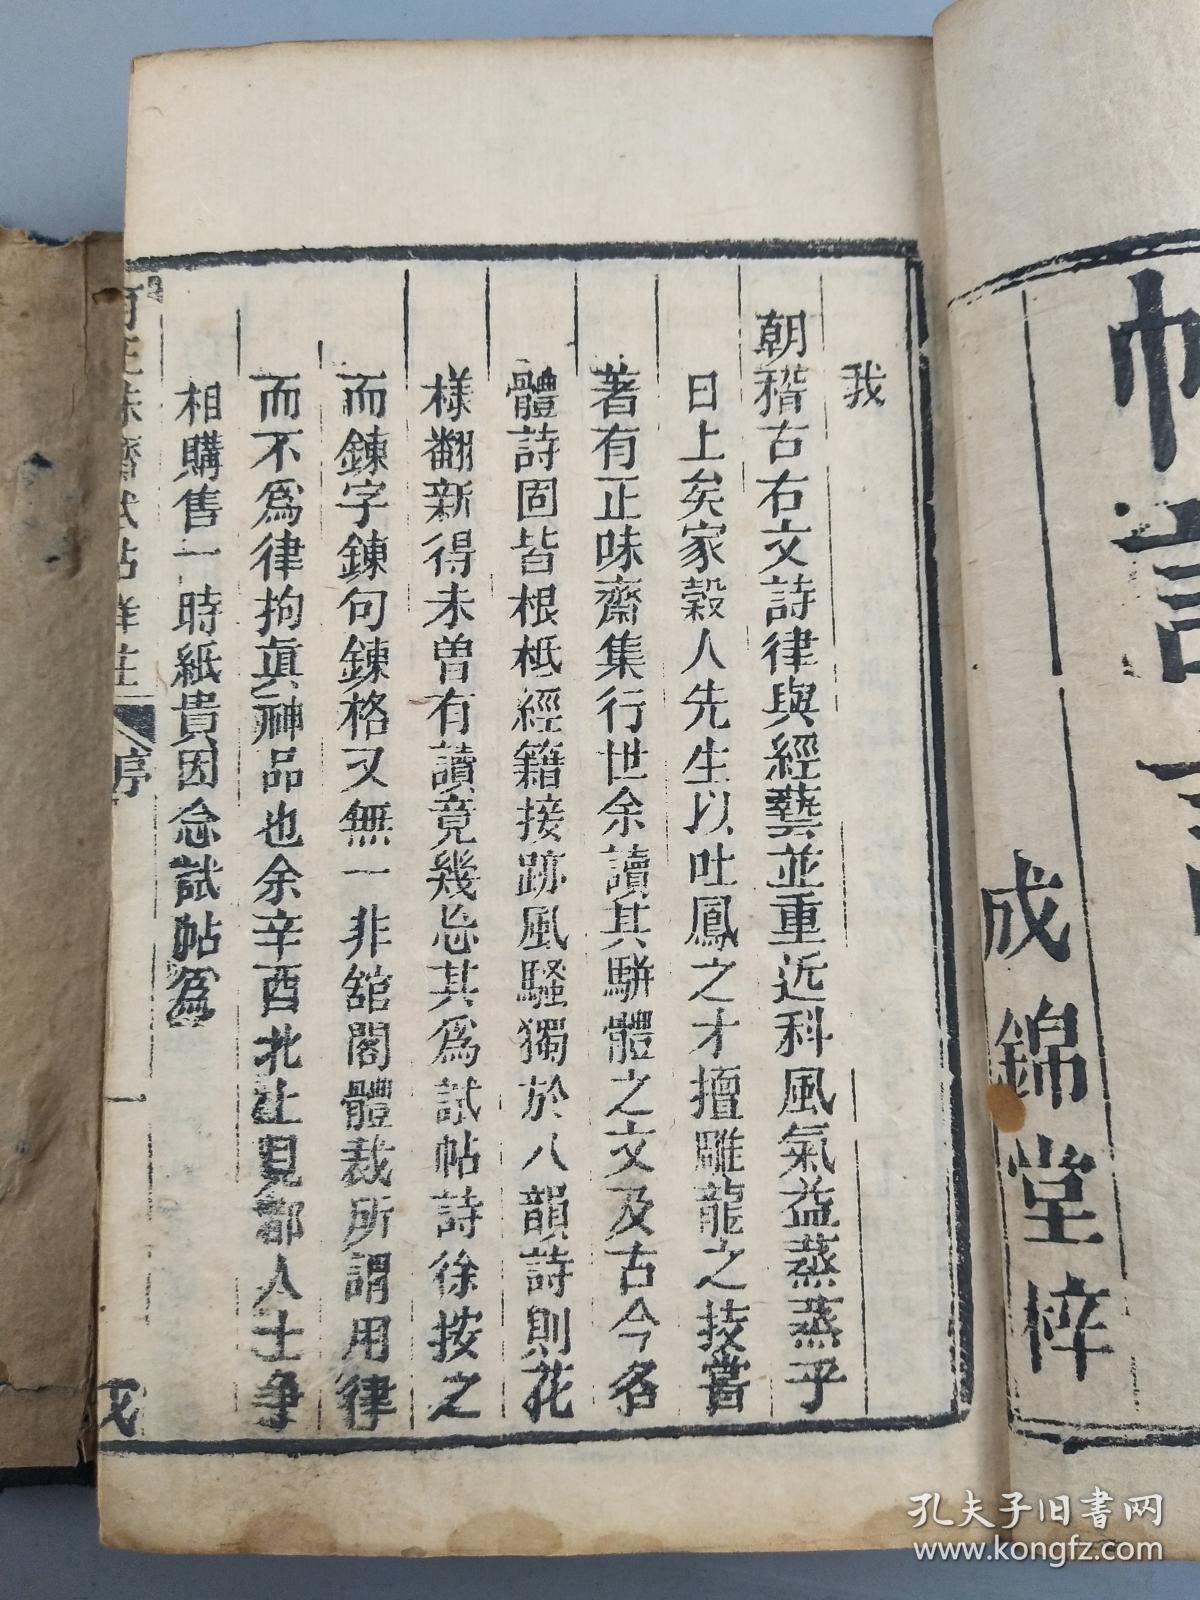 帖詩
成錦堂梓
我
朝稽古右文詩律與經藝並重近科風氣益蒸蒸乎
日上矣家穀人先生以吐鳳之才擅雕龍之技嘗
著有正味齋集行世余讀其駢體之文及古今各
體詩固皆根柢經籍接跡風騷獨於八韻詩則花
樣翻新得未曾有讀竟幾忘其為試帖詩徐按之
而鍊字鍊句鍊格又無一非舘閣體裁所謂用律
而不為律拘真神品也余辛酉北上見都人士爭
相購售一時紙貴因念試帖為
有正味齋試帖詳註 序 一 成
孔夫子旧书网
www.kongfz.com